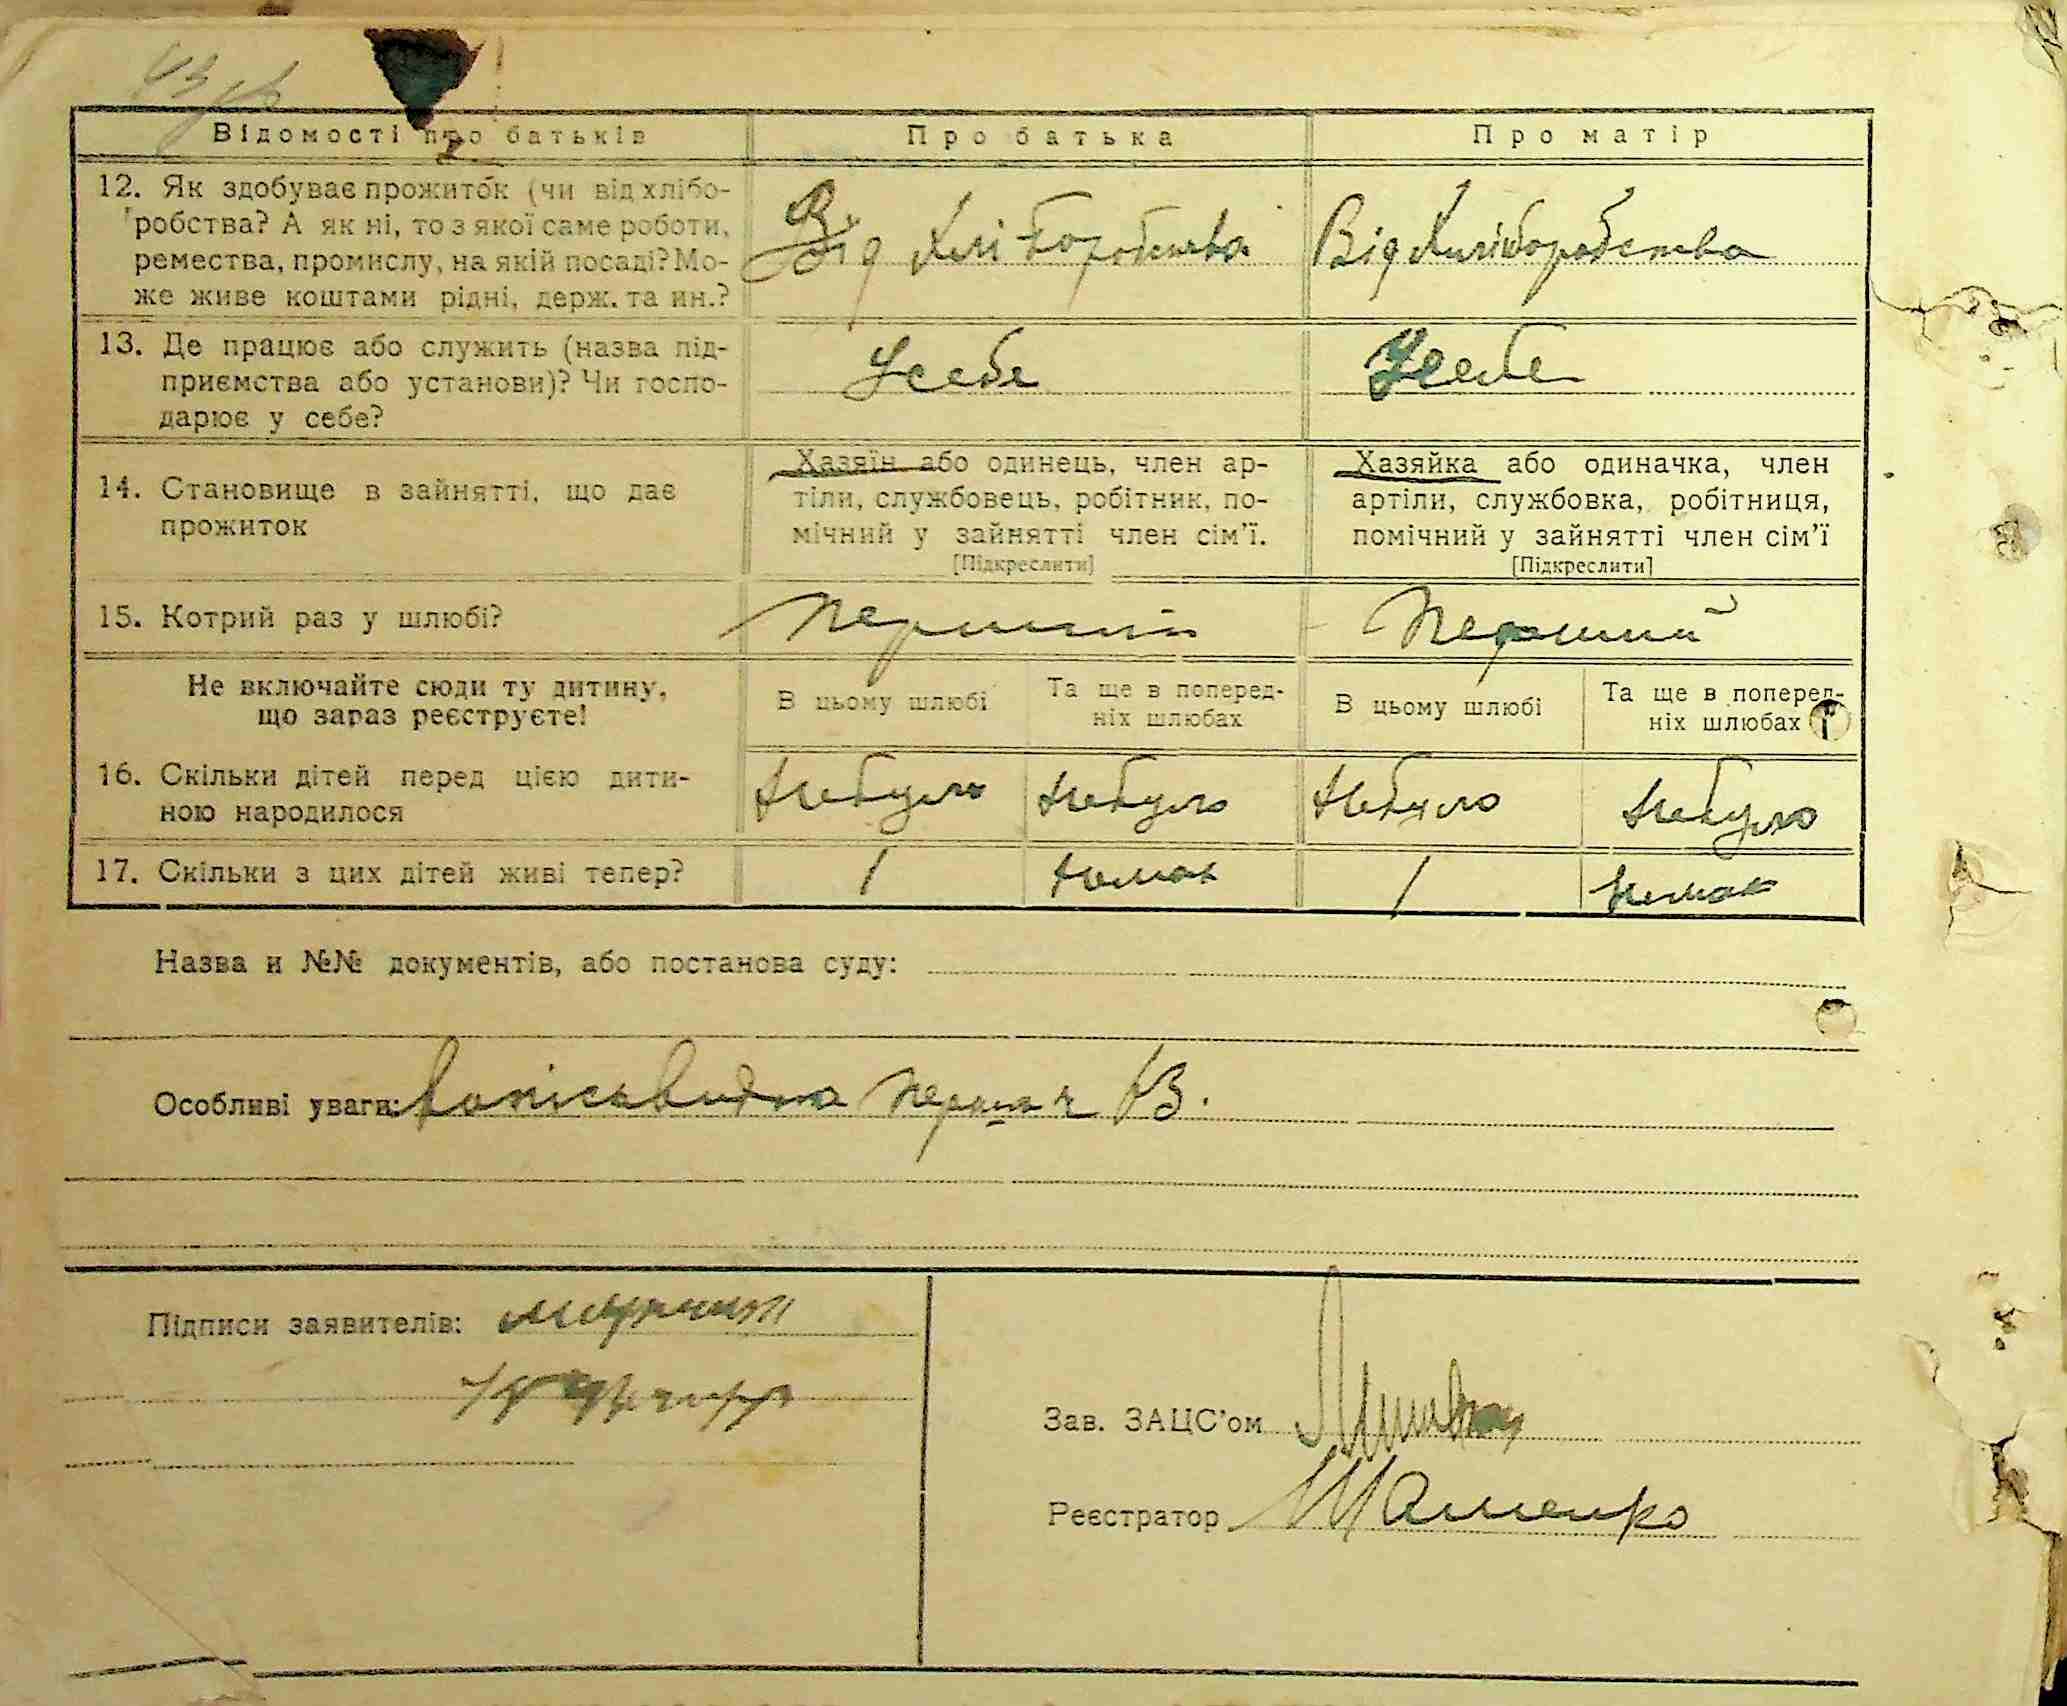 Відомості про батьків
Про батька
Про матір
12. Як здобуває прожиток (чи від хлібо-
робства? А як ні, то з якої саме роботи,
ремества, промислу, на якій посаді? Мо-
же живе коштами рідні, держ. та ин.?
Від Хліборобства
Від Хліборобства
13. Де працює або служить (назва під-
приємства або установи)? Чи госпо-
дарює у себе?
Усебе
Усебе
14. Становище в зайнятті, що дає
прожиток
Хазяїн або одинець, член ар-
тіли, службовець, робітник, по-
мічний у зайнятті член сім'ї.
[Підкреслити]
Хазяйка або одиначка, член
артіли, службовка, робітниця,
помічний у зайнятті член сім'ї
[Підкреслити]
15. Котрий раз у шлюбі?
перший
перший
Не включайте сюди ту дитину,
що зараз реєструєте!
В цьому шлюбі
Та ще в поперед-
ніх шлюбах
В цьому шлюбі
Та ще в поперед-
ніх шлюбах
16. Скільки дітей перед цією дити-
ною народилося
Небуло
Небуло
Небуло
Небуло
17. Скільки з цих дітей живі тепер?
/
/
Назва и №№ документів, або постанова суду:
Особливі уваги:
Підписи заявителів:
Зав. ЗАЦС'ом
Реєстратор